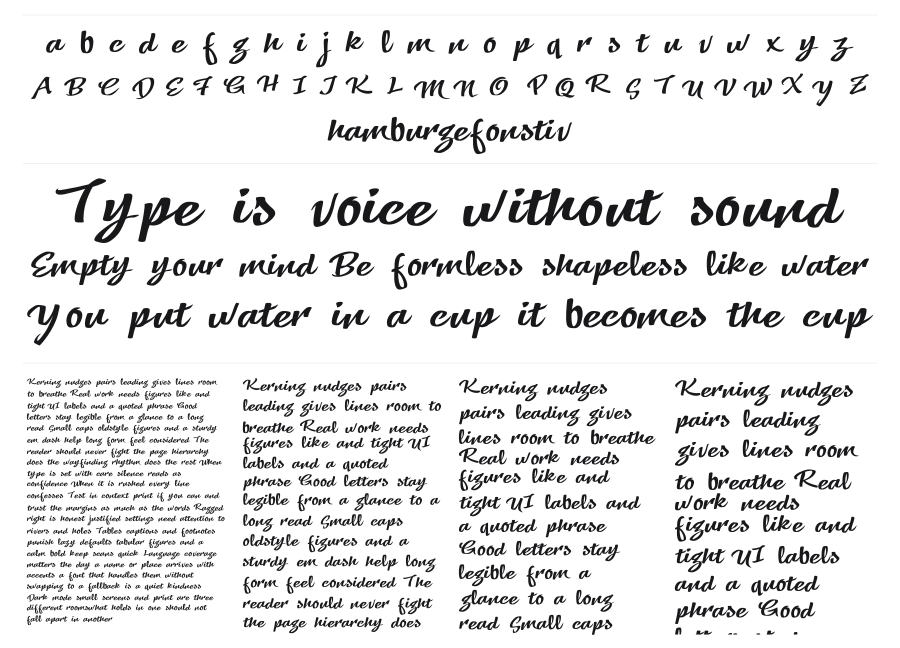 a b c d e f g h i j k l m n o p q r s t u v w x y z
A B C D E F G H I J K L M N O P Q R S T U V W X Y Z
hamburgefonstiv
Type is voice without sound
Empty your mind Be formless shapeless like water
You put water in a cup it becomes the cup
Kerning nudges pairs leading gives lines room
to breathe Real work needs figures like and
tight UI labels and a quoted phrase Good
letters stay legible from a glance to a long
read Small caps oldstyle figures and a sturdy
em dash help long form feel considered The
reader should never fight the page hierarchy
does the wayfinding rhythm does the rest When
type is set with care silence reads as
confidence When it is rushed every line
confesses Test in context print if you can and
trust the margins as much as the words Ragged
right is honest justified settings need attention to
rivers and holes Tables captions and footnotes
punish lazy defaults tabular figures and a
calm bold keep scans quick Language coverage
matters the day a name or place arrives with
accents a font that handles them without
swapping to a fallback is a quiet kindness
Dark mode small screens and print are three
different roomswhat holds in one should not
fall apart in another
Kerning nudges pairs
leading gives lines room to
breathe Real work needs
figures like and tight UI
labels and a quoted
phrase Good letters stay
legible from a glance to a
long read Small caps
oldstyle figures and a
sturdy em dash help long
form feel considered The
reader should never fight
the page hierarchy does
Kerning nudges
pairs leading gives
lines room to breathe
Real work needs
figures like and
tight UI labels and
a quoted phrase
Good letters stay
legible from a
glance to a long
read Small caps
Kerning nudges
pairs leading
gives lines room
to breathe Real
work needs
figures like and
tight UI labels
and a quoted
phrase Good